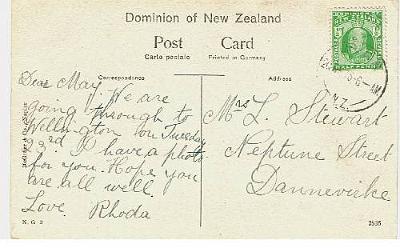 Dominion of New Zealand
Post Card
Carte postale Printed in Germany
Correspondence
Address
Dear May, We are
going through to
Wellington on Tuesday
23rd I have a photo
for you. Hope you
are all well.
Love Rhoda
Mrs L. Stewart
Neptune Street
Dannevirke
NEW ZEALAND
HALF PENNY
N.Z.
N. G. 2
2535